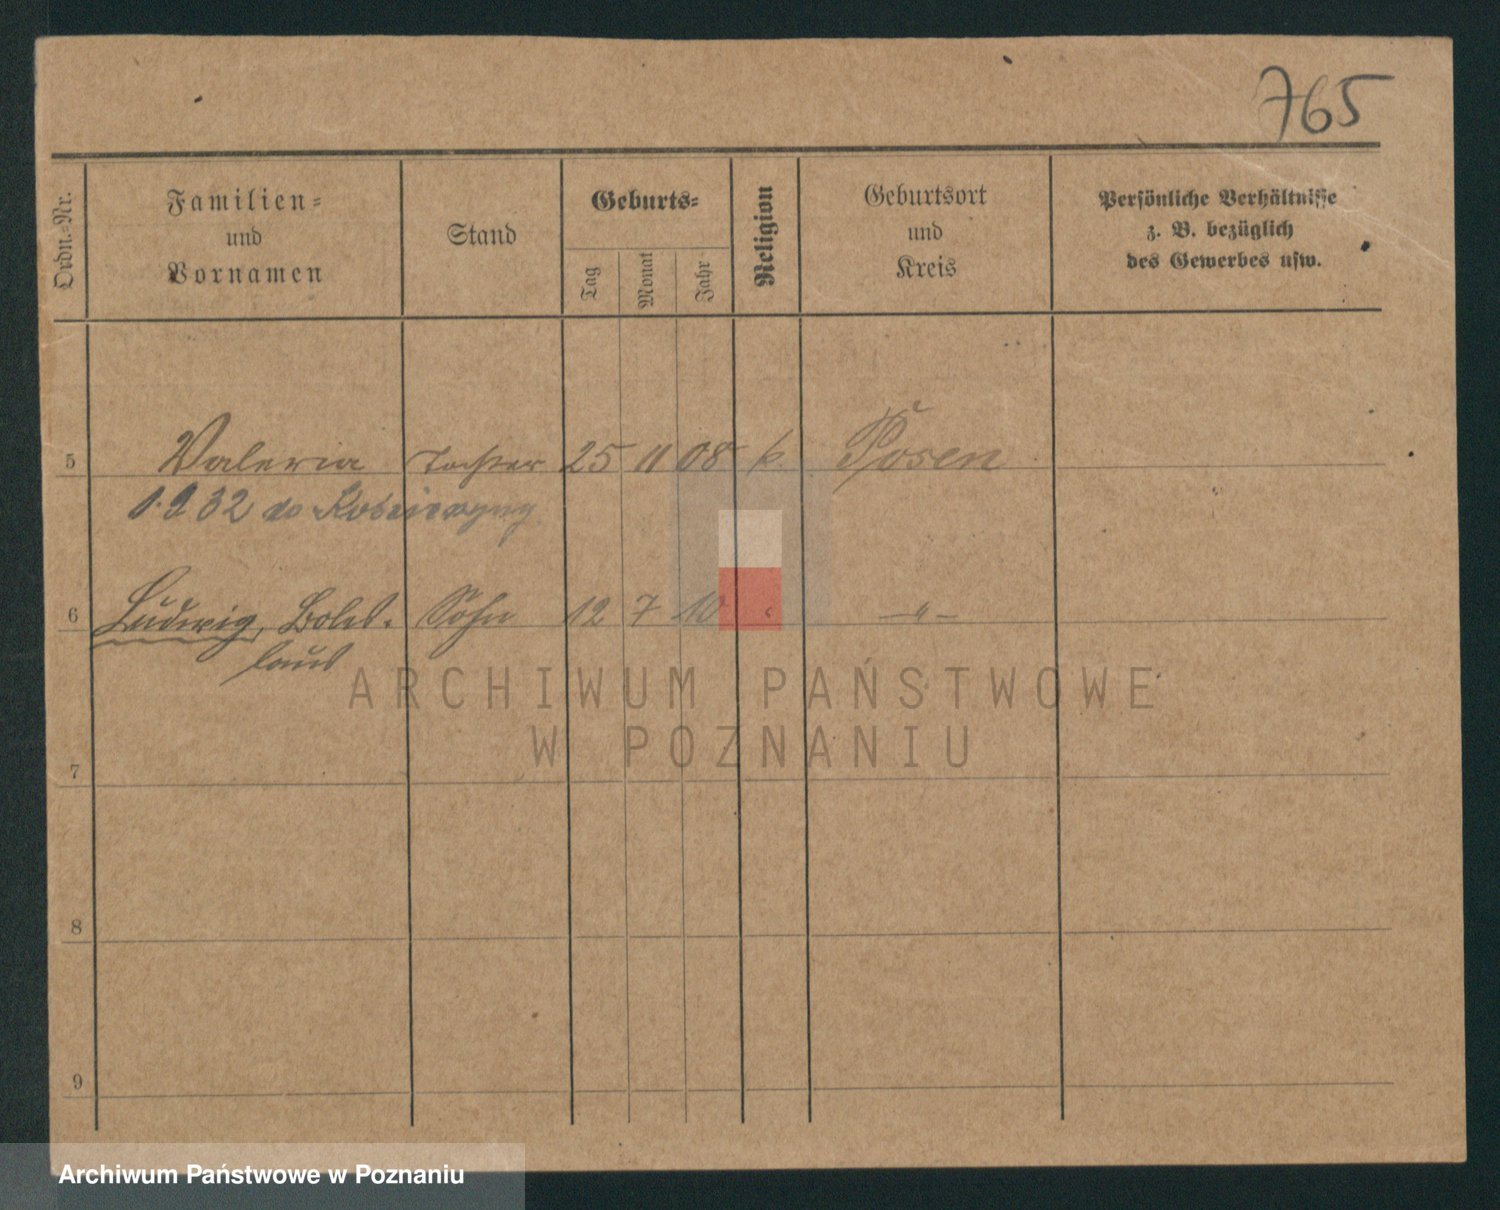 765
Ordn.-Nr.
Familien-
und
Vornamen
Stand
Geburts-
Tag
Monat
Jahr
Religion
Geburtsort
und
Kreis
Persönliche Verhältnisse
z. B. bezüglich
des Gewerbes usw.
5 Valeria Tochter 25 11 08 k. Posen
1.9 32 do
6 Ludwig, Boles- Sohn 12 7 10 " -"-
laus
ARCHIWUM PAŃSTWOWE
W POZNANIU
7
8
9
Archiwum Państwowe w Poznaniu